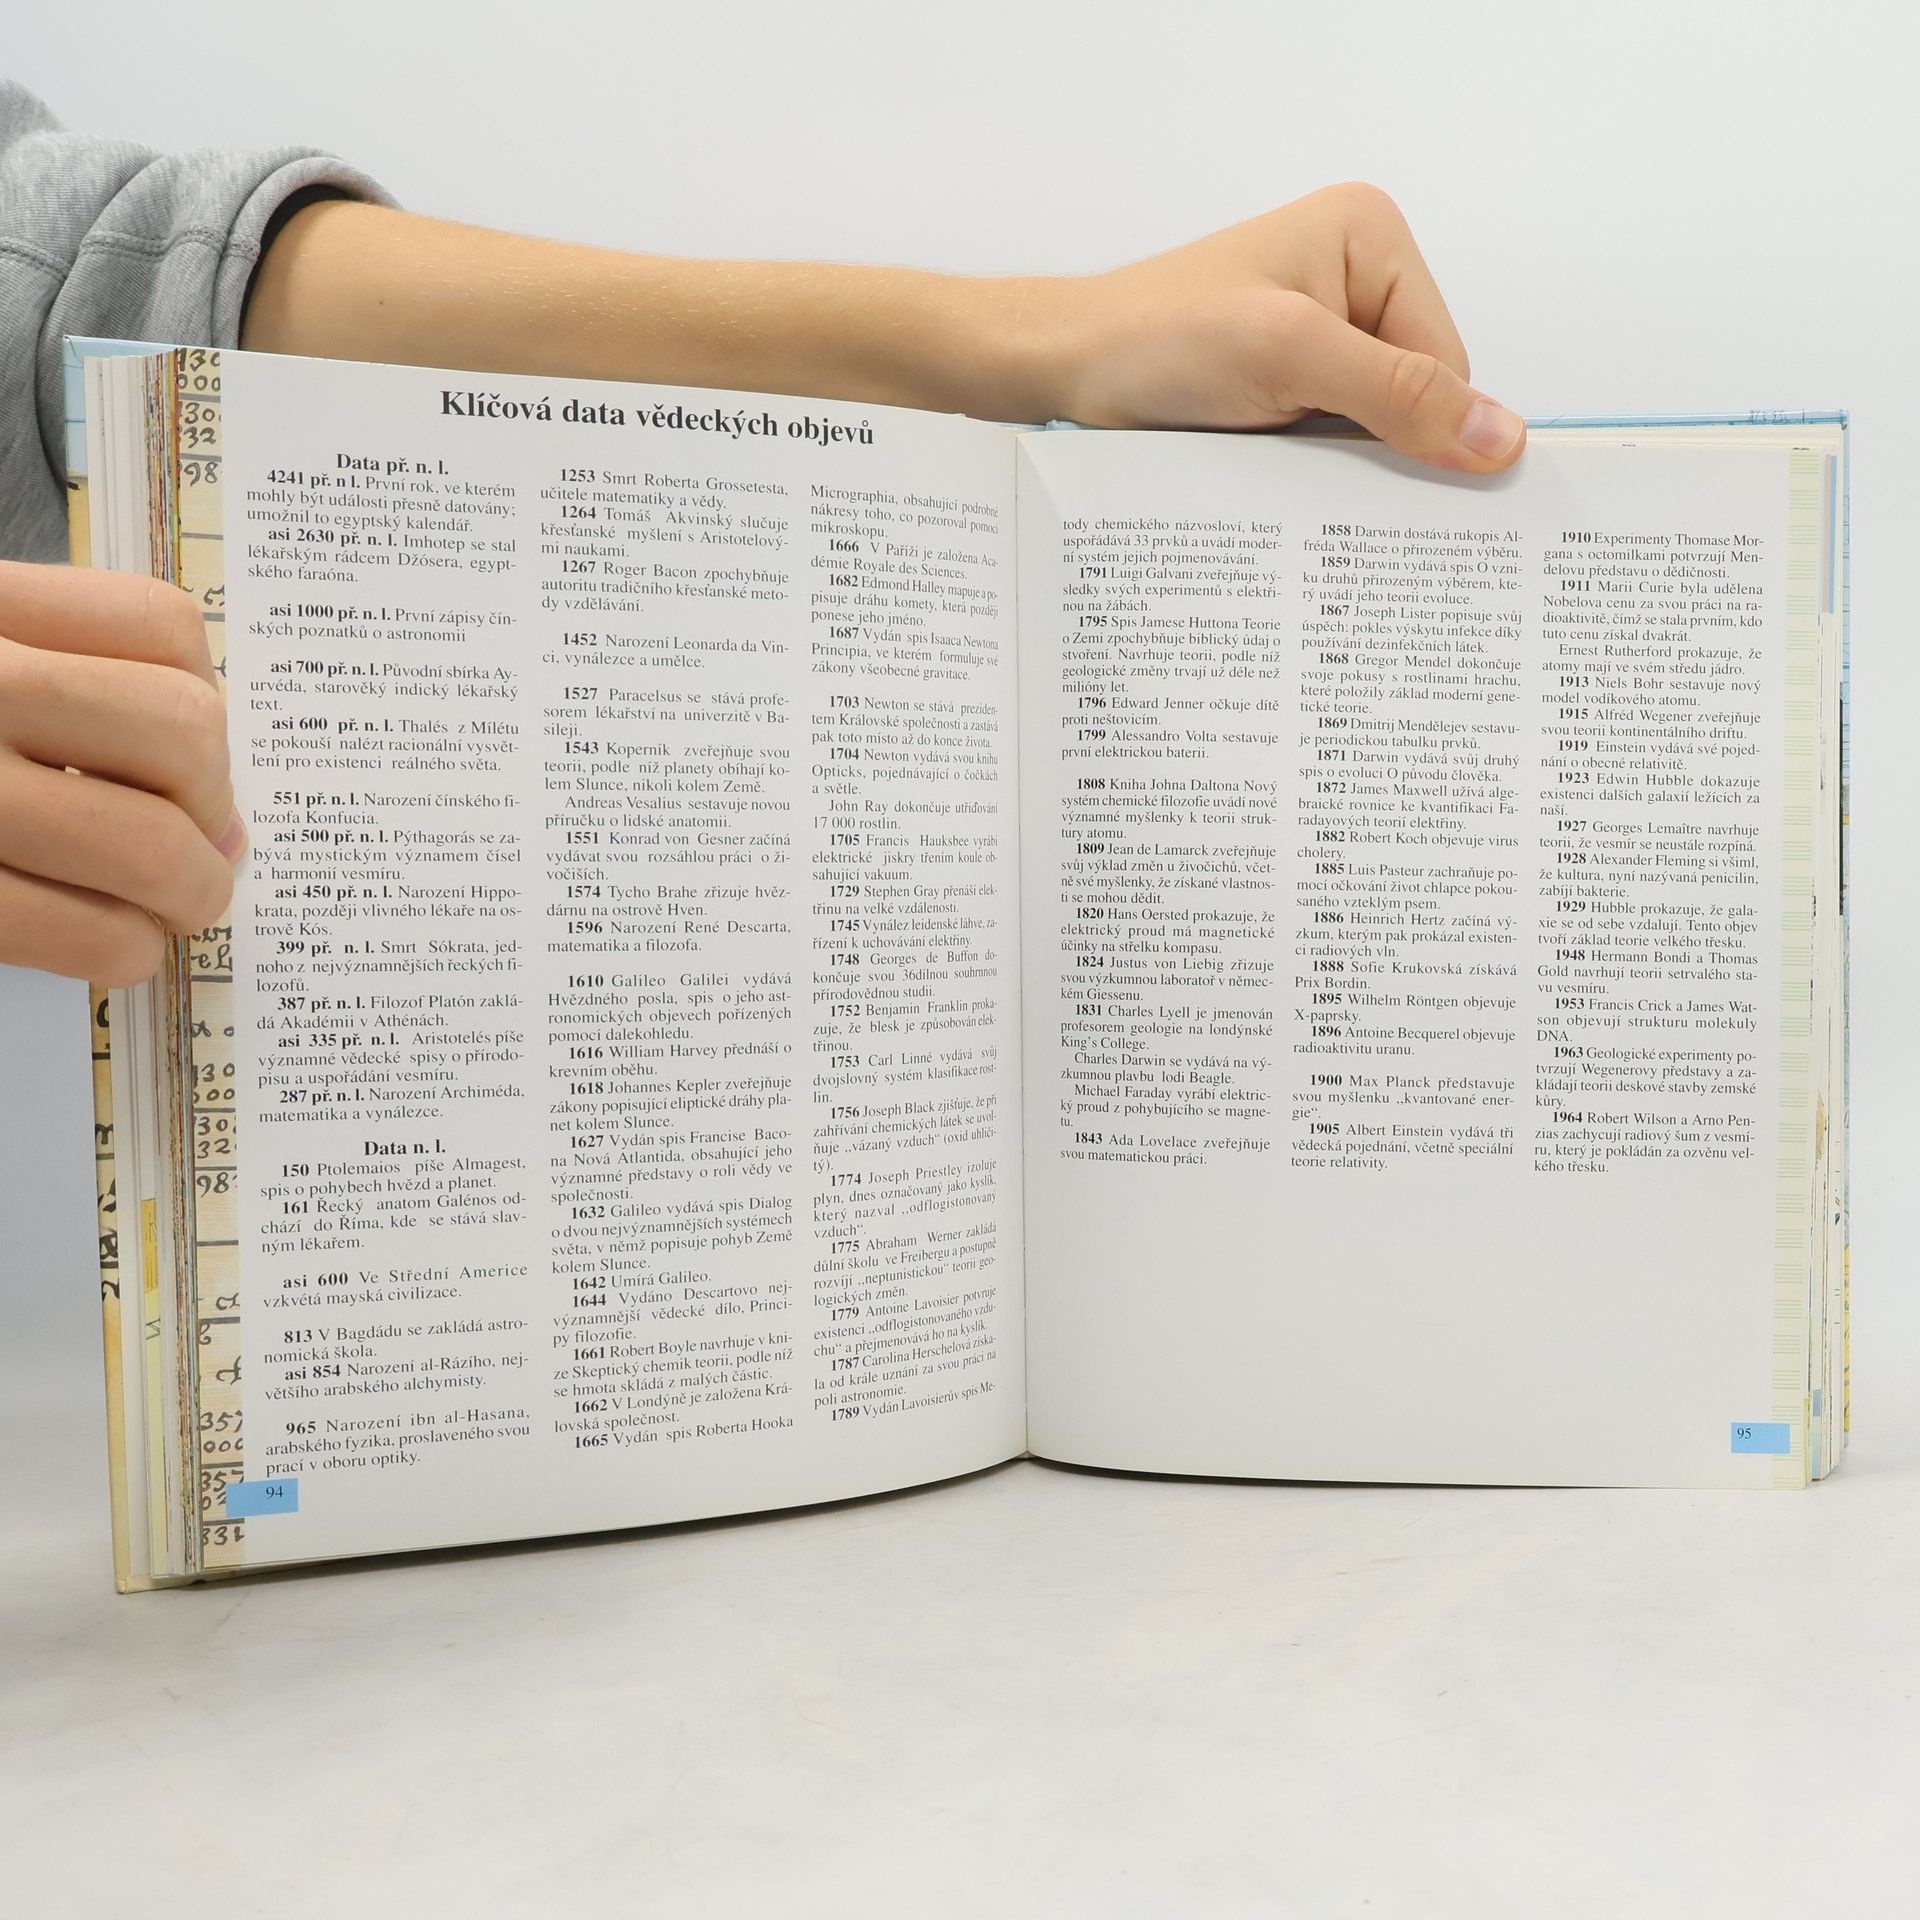 Klíčová data vědeckých objevů
Data př. n. l.
4241 př. n l. První rok, ve kterém
mohly být události přesně datovány;
umožnil to egyptský kalendář.
asi 2630 př. n. l. Imhotep se stal
lékařským rádcem Džósera, egypt-
ského faraóna.
asi 1000 př. n. l. První zápisy čín-
ských poznatků o astronomii
asi 700 př. n. l. Původní sbírka Ay-
urvéda, starověký indický lékařský
text.
asi 600 př. n. l. Thalés z Mílétu
se pokouší nalézt racionální vysvět-
lení pro existenci reálného světa.
551 př. n. l. Narození čínského fi-
lozofa Konfucia.
asi 500 př. n. l. Pýthagorás se za-
bývá mystickým významem čísel
a harmonií vesmíru.
asi 450 př. n. l. Narození Hippo-
krata, později vlivného lékaře na os-
trově Kós.
399 př. n. l. Smrt Sókrata, jed-
noho z nejvýznamnějších řeckých fi-
lozofů.
387 př. n. l. Filozof Platón zaklá-
dá Akadémii v Athénách.
asi 335 př. n. l. Aristotelés píše
významné vědecké spisy o přírodo-
pisu a uspořádání vesmíru.
287 př. n. l. Narození Archiméda,
matematika a vynálezce.
Data n. l.
150 Ptolemaios píše Almagest,
spis o pohybech hvězd a planet.
161 Řecký anatom Galénos od-
chází do Říma, kde se stává slav-
ným lékařem.
asi 600 Ve Střední Americe
vzkvétá mayská civilizace.
813 V Bagdádu se zakládá astro-
nomická škola.
asi 854 Narození al-Rázího, nej-
většího arabského alchymisty.
965 Narození ibn al-Hasana,
arabského fyzika, proslaveného svou
prací v oboru optiky.
94
1253 Smrt Roberta Grossetesta,
učitele matematiky a vědy.
1264 Tomáš Akvinský slučuje
křesťanské myšlení s Aristotelový-
mi naukami.
1267 Roger Bacon zpochybňuje
autoritu tradičního křesťanské meto-
dy vzdělávání.
1452 Narození Leonarda da Vin-
ci, vynálezce a umělce.
1527 Paracelsus se stává profe-
sorem lékařství na univerzitě v Ba-
sileji.
1543 Koperník zveřejňuje svou
teorii, podle níž planety obíhají ko-
lem Slunce, nikoli kolem Země.
Andreas Vesalius sestavuje novou
příručku o lidské anatomii.
1551 Konrad von Gesner začíná
vydávat svou rozsáhlou práci o ži-
vočiších.
1574 Tycho Brahe zřizuje hvěz-
dárnu na ostrově Hven.
1596 Narození René Descarta,
matematika a filozofa.
1610 Galileo Galilei vydává
Hvězdného posla, spis o jeho ast-
ronomických objevech pořízených
pomocí dalekohledu.
1616 William Harvey přednáší o
krevním oběhu.
1618 Johannes Kepler zveřejňuje
zákony popisující eliptické dráhy pla-
net kolem Slunce.
1627 Vydán spis Francise Baco-
na Nová Atlantida, obsahující jeho
významné představy o roli vědy ve
společnosti.
1632 Galileo vydává spis Dialog
o dvou nejvýznamnějších systémech
světa, v němž popisuje pohyb Země
kolem Slunce.
1642 Umírá Galileo.
1644 Vydáno Descartovo nej-
významnější vědecké dílo, Princi-
py filozofie.
1661 Robert Boyle navrhuje v kni-
ze Skeptický chemik teorii, podle níž
se hmota skládá z malých částic.
1662 V Londýně je založena Krá-
lovská společnost.
1665 Vydán spis Roberta Hooka
Micrographia, obsahující podrobné
nákresy toho, co pozoroval pomocí
mikroskopu.
1666 V Paříži je založena Aca-
démie Royale des Sciences.
1682 Edmond Halley mapuje a po-
pisuje dráhu komety, která později
ponese jeho jméno.
1687 Vydán spis Isaaca Newtona
Principia, ve kterém formuluje své
zákony všeobecné gravitace.
1703 Newton se stává preziden-
tem Královské společnosti a zastává
pak toto místo až do konce života.
1704 Newton vydává svou knihu
Opticks, pojednávající o čočkách
a světle.
John Ray dokončuje utřiďování
17 000 rostlin.
1705 Francis Hauksbee vyrábí
elektrické jiskry třením koule ob-
sahující vakuum.
1729 Stephen Gray přenáší elek-
třinu na velké vzdálenosti.
1745 Vynález leidenské láhve, za-
řízení k uchovávání elektřiny.
1748 Georges de Buffon do-
končuje svou 36dílnou souhrnnou
přírodovědnou studii.
1752 Benjamin Franklin proka-
zuje, že blesk je způsobován elek-
třinou.
1753 Carl Linné vydává svůj
dvojslovný systém klasifikace rost-
lin.
1756 Joseph Black zjišťuje, že při
zahřívání chemických látek se uvol-
ňuje ,,vázaný vzduch“ (oxid uhliči-
tý).
1774 Joseph Priestley izoluje
plyn, dnes označovaný jako kyslík,
který nazval ,,odflogistonovaný
vzduch“.
1775 Abraham Werner zakládá
důlní školu ve Freibergu a postupně
rozvíjí ,,neptunistickou“ teorii geo-
logických změn.
1779 Antoine Lavoisier potvruje
existenci ,,odflogistonovaného vzdu-
chu“ a přejmenovává ho na kyslík.
1787 Carolina Herschelová získa-
la od krále uznání za svou práci na
poli astronomie.
1789 Vydán Lavoisierův spis Me-
tody chemického názvosloví, který
uspořádává 33 prvků a uvádí moder-
ní systém jejich pojmenovávání.
1791 Luigi Galvani zveřejňuje vý-
sledky svých experimentů s elektři-
nou na žábách.
1795 Spis Jamese Huttona Teorie
o Zemi zpochybňuje biblický údaj o
stvoření. Navrhuje teorii, podle níž
geologické změny trvají už déle než
milióny let.
1796 Edward Jenner očkuje dítě
proti neštovicím.
1799 Alessandro Volta sestavuje
první elektrickou baterii.
1808 Kniha Johna Daltona Nový
systém chemické filozofie uvádí nové
významné myšlenky k teorii struk-
tury atomu.
1809 Jean de Lamarck zveřejňuje
svůj výklad změn u živočichů, včet-
ně své myšlenky, že získané vlastnos-
ti se mohou dědit.
1820 Hans Oersted prokazuje, že
elektrický proud má magnetické
účinky na střelku kompasu.
1824 Justus von Liebig zřizuje
svou výzkumnou laboratoř v němec-
kém Giessenu.
1831 Charles Lyell je jmenován
profesorem geologie na londýnské
King's College.
Charles Darwin se vydává na vý-
zkumnou plavbu lodi Beagle.
Michael Faraday vyrábí elektric-
ký proud z pohybujícího se magne-
tu.
1843 Ada Lovelace zveřejňuje
svou matematickou práci.
1858 Darwin dostává rukopis Al-
fréda Wallace o přirozeném výběru.
1859 Darwin vydává spis O vzni-
ku druhů přirozeným výběrem, kte-
rý uvádí jeho teorii evoluce.
1867 Joseph Lister popisuje svůj
úspěch: pokles výskytu infekce díky
používání dezinfekčních látek.
1868 Gregor Mendel dokončuje
svoje pokusy s rostlinami hrachu,
které položily základ moderní gene-
tické teorie.
1869 Dmitrij Mendělejev sestavu-
je periodickou tabulku prvků.
1871 Darwin vydává svůj druhý
spis o evoluci O původu člověka.
1872 James Maxwell užívá alge-
braické rovnice ke kvantifikaci Fa-
radayových teorií elektřiny.
1882 Robert Koch objevuje virus
cholery.
1885 Luis Pasteur zachraňuje po-
mocí očkování život chlapce pokou-
saného vzteklým psem.
1886 Heinrich Hertz začíná vý-
zkum, kterým pak prokázal existen-
ci radiových vln.
1888 Sofie Krukovská získává
Prix Bordin.
1895 Wilhelm Röntgen objevuje
X-paprsky.
1896 Antoine Becquerel objevuje
radioaktivitu uranu.
1900 Max Planck představuje
svou myšlenku ,,kvantové ener-
gie“.
1905 Albert Einstein vydává tři
vědecká pojednání, včetně speciální
teorie relativity.
1910 Experimenty Thomase Mor-
gana s octomilkami potvrzují Men-
delovu představu o dědičnosti.
1911 Marii Curie byla udělena
Nobelova cenu za svou práci na ra-
dioaktivitě, čímž se stala prvním, kdo
tuto cenu získal dvakrát.
Ernest Rutherford prokazuje, že
atomy mají ve svém středu jádro.
1913 Niels Bohr sestavuje nový
model vodíkového atomu.
1915 Alfréd Wegener zveřejňuje
svou teorii kontinentálního driftu.
1919 Einstein vydává své pojed-
nání o obecné relativitě.
1923 Edwin Hubble dokazuje
existenci dalších galaxií ležících za
naší.
1927 Georges Lemaître navrhuje
teorii, že vesmír se neustále rozpíná.
1928 Alexander Fleming si všiml,
že kultura, nyní nazývaná penicilin,
zabíjí bakterie.
1929 Hubble prokazuje, že gala-
xie se od sebe vzdalují. Tento objev
tvoří základ teorie velkého třesku.
1948 Hermann Bondi a Thomas
Gold navrhují teorii setrvalého sta-
vu vesmíru.
1953 Francis Crick a James Wat-
son objevují strukturu molekuly
DNA.
1963 Geologické experimenty po-
tvrzují Wegenerovy představy a za-
kládají teorii deskové stavby zemské
kůry.
1964 Robert Wilson a Arno Pen-
zias zachycují radiový šum z vesmí-
ru, který je pokládán za ozvěnu vel-
kého třesku.
95